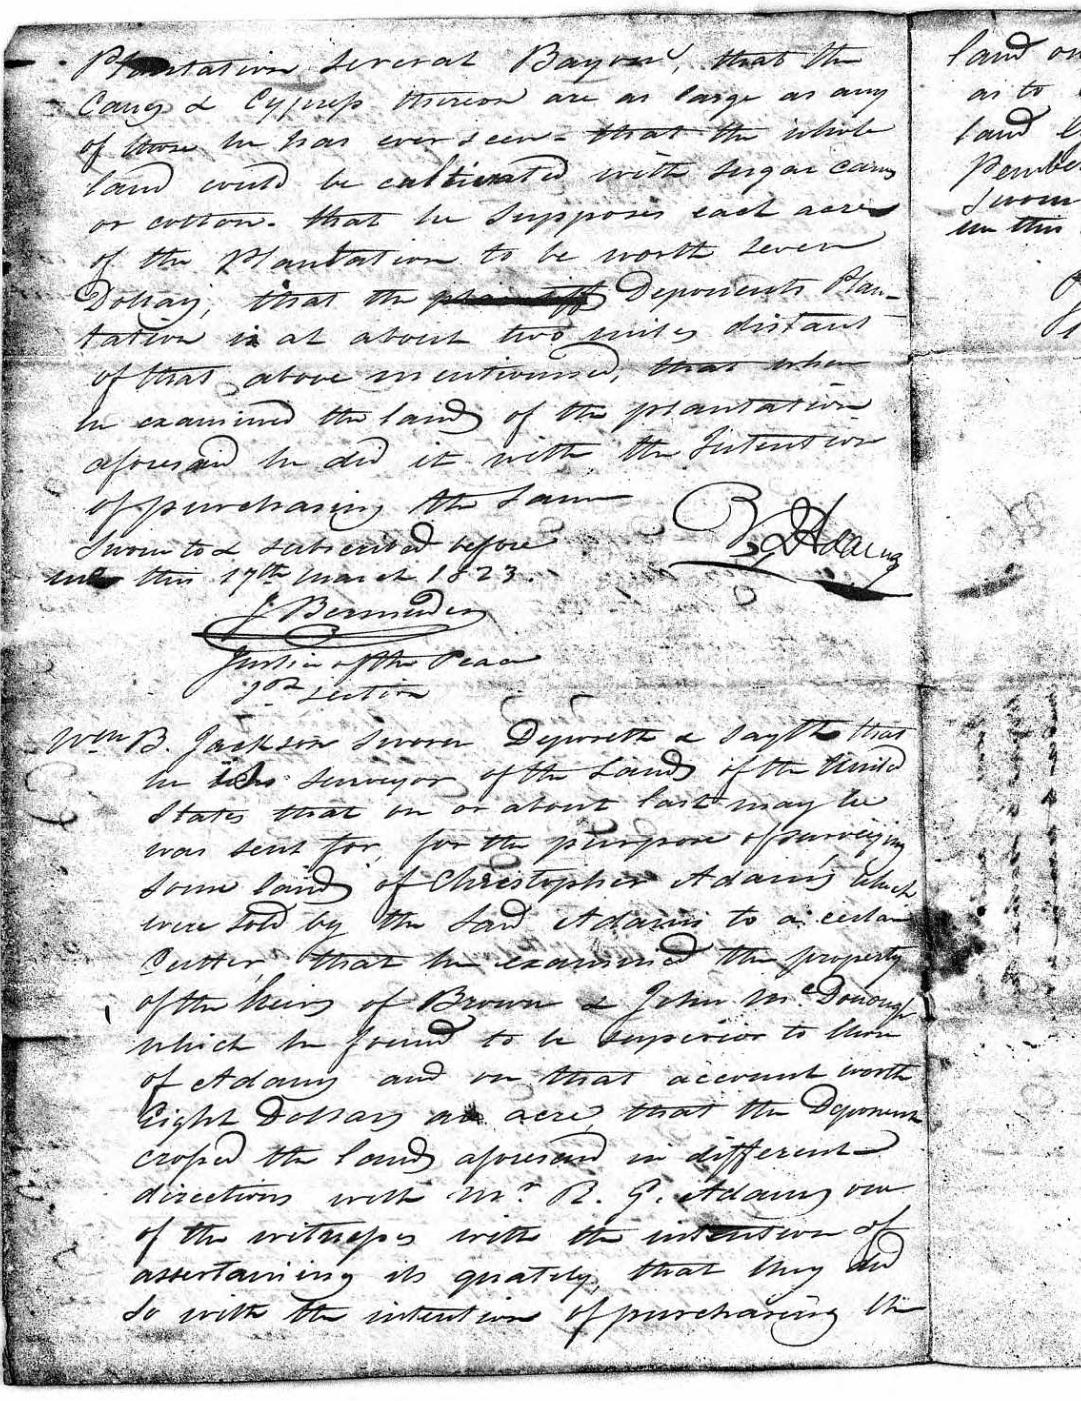 Plantation several Bayous, that the
Canes & Cypress thereon are as large as any
of those he has ever seen - that the whole
land could be cultivated with sugar cane
or cotton. that he supposes each acre
of the Plantation to be worth seven
Dollars, that the plaintiff Deponents Plan-
tation is at about two miles distant
of that above mentionned, that when
he examined the lands of the plantation
aforesaid he did it with the Intention
of purchasing the same
Sworn to & subscribed before
me this 17th March 1823.
R G Adams
J Bermudez
Justice of the Peace
section
Wm B. Jackson sworn Deposeth & sayth that
he is surveyor of the Lands of the United
States that on or about last may he
was sent for, for the purpose of surveying
some lands of Christopher Adams which
were sold by the said Adams to a certain
Cutter, that he examined the property
of the heirs of Brown & John McDonough
which he found to be superior to those
of Adams and on that account worth
Eight Dollars an acre, that the Deponent
crossed the lands aforesaid in different
directions with Mr. R. G. Adams one
of the witnesses with the intention of
assertaining its quately, that they did
so with the intention of purchasing the
land
as to
land
Sworn
me this